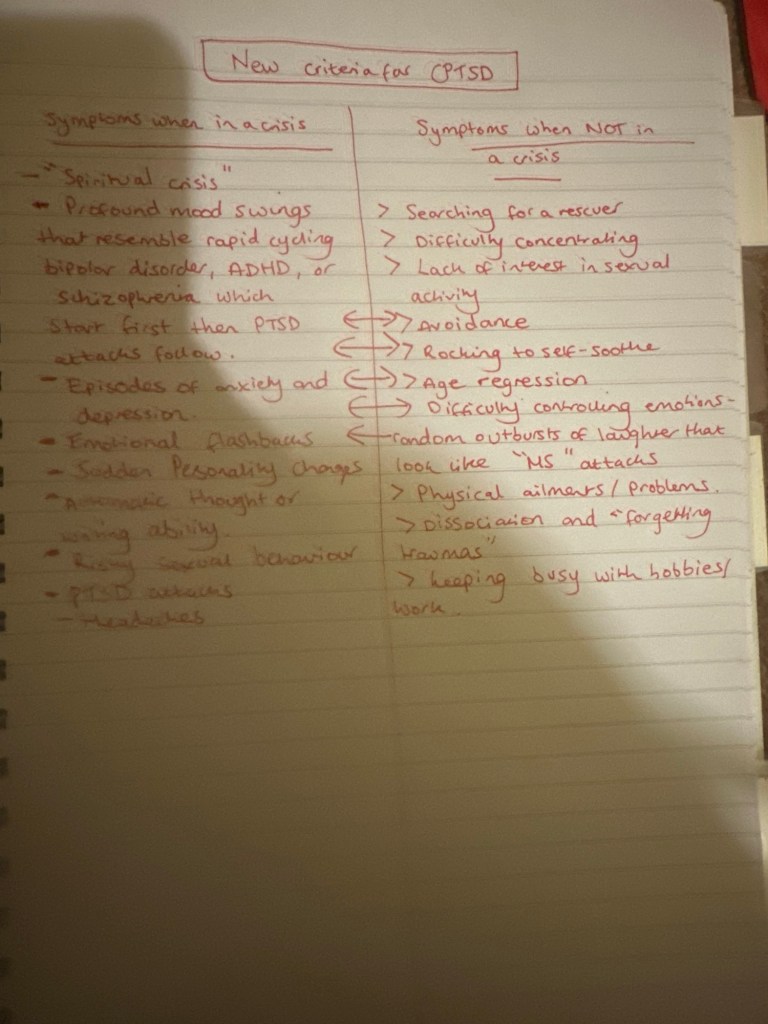 New criteria for CPTSD
Symptoms when in a crisis
- "Spiritual crisis"
- Profound mood swings
that resemble rapid cycling
bipolar disorder, ADHD, or
schizophrenia which
start first then PTSD
attacks follow.
- Episodes of anxiety and
depression.
- Emotional flashbacks
- Sudden Personality changes
- Automatic thought or
writing ability.
- Risky sexual behaviour
- PTSD attacks
- Headaches
Symptoms when NOT in
a crisis
> Searching for a rescuer
> Difficulty concentrating
> Lack of interest in sexual
activity
↔ > Avoidance
↔ > Rocking to self-soothe
↔ > Age regression
↔ Difficulty controlling emotions-
← random outbursts of laughter that
look like "MS" attacks
> Physical ailments/problems.
> Dissociation and "forgetting
traumas"
> Keeping busy with hobbies/
work.